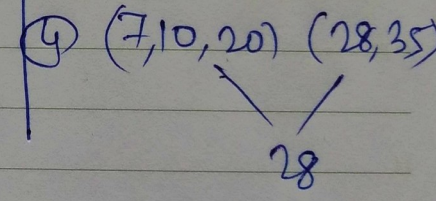 ④ (7,10,20) (28,35)
28